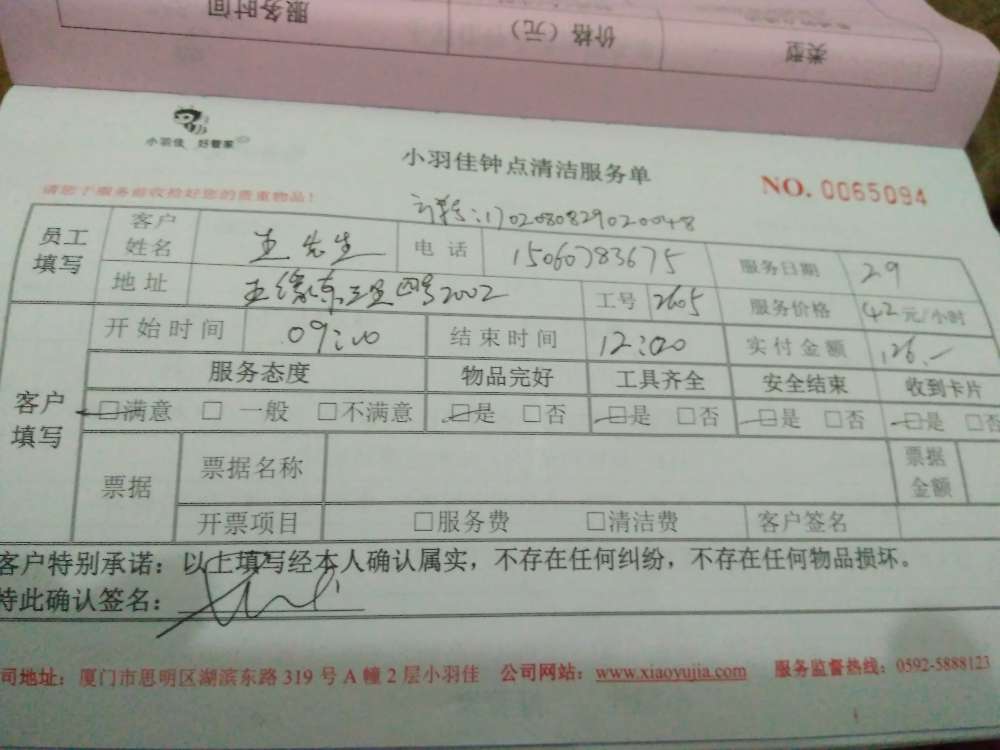 服务时间
价格（元）
类型
小羽佳 好管家
小羽佳钟点清洁服务单
NO. 0065094
请您于服务前收拾好您的贵重物品！
:1702080829020048
员工填写 客户姓名 王先生 电话 15060783675 服务日期 29
地址 2002 工号 2605 服务价格 42元/小时
开始时间 09:00 结束时间 12:00 实付金额 126.-
客户填写 服务态度 物品完好 工具齐全 安全结束 收到卡片
□满意 □一般 □不满意 □是 □否 □是 □否 □是 □否 □是 □否
票据 票据名称 票据金额
开票项目 □服务费 □清洁费 客户签名
客户特别承诺：以上填写经本人确认属实，不存在任何纠纷，不存在任何物品损坏。
特此确认签名：
司地址：厦门市思明区湖滨东路319号A幢2层小羽佳 公司网站：www.xiaoyujia.com 服务监督热线：0592-5888123